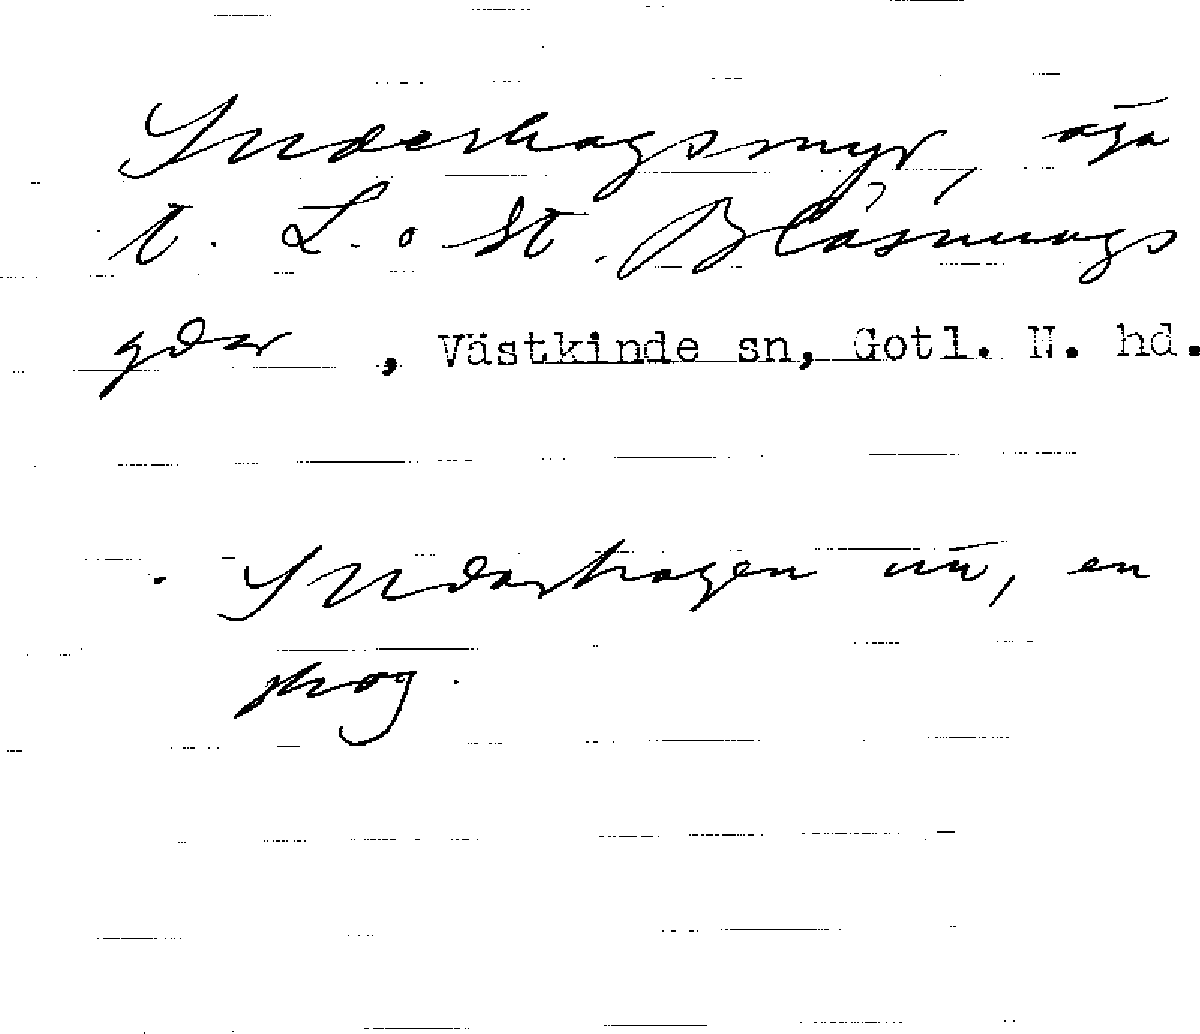 Inderhagsmyr, äga
t. L. o St. Blåsnungs
gdar, Västkinde sn, Gotl. N. hd.
Inderhagen nu, en
skog.